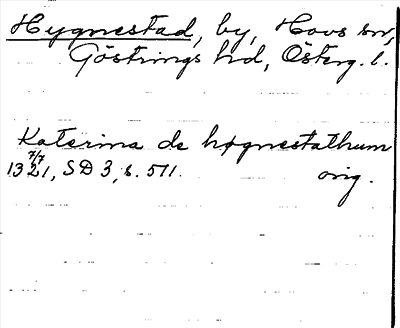 Hygnestad, by, Hovs sn,
Göstrings hd, Österg. l.
Katerina de høgnestathum
7/7
1321, SD 3, s. 511. orig.